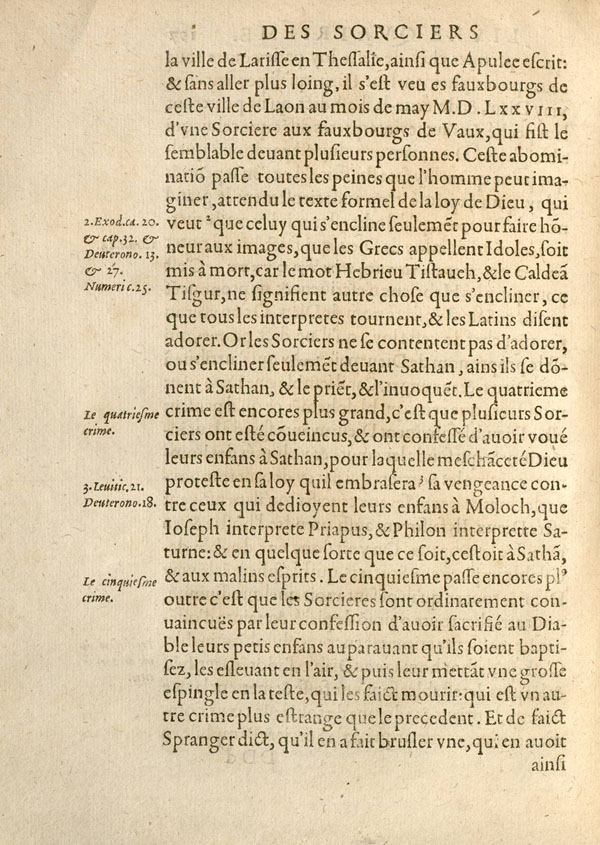 DES SORCIERS
la ville de Larisse en Thessalie, ainsi que Apulee escrit:
& sans aller plus loing, il s'est veu es fauxbourgs de
ceste ville de Laon au mois de may M. D. LXXVIII,
d'vne Sorciere aux fauxbourgs de Vaux, qui fist le
semblable deuant plusieurs personnes. Ceste abomi-
natiō passe toutes les peines que l'homme peut ima-
giner, attendu le texte formel de la loy de Dieu, qui
2. Exod. ca. 20.
& cap. 32. &
Deuterono. 13.
& 27.
Numeri c. 25.
veut ² que celuy qui s'encline seulemēt pour faire hō-
neur aux images, que les Grecs appellent Idoles, soit
mis à mort, car le mot Hebrieu Tistaueh, & le Caldeā
Tisgur, ne signifient autre chose que s'encliner, ce
que tous les interpretes tournent, & les Latins disent
adorer. Or les Sorciers ne se contentent pas d'adorer,
ou s'encliner seulemēt deuant Sathan, ains ils se dō-
nent à Sathan, & le priēt, & l'inuoquēt. Le quatrieme
Le quatriesme
crime.
crime est encores plus grand, c'est que plusieurs Sor-
ciers ont esté cōueincus, & ont confessé d'auoir voué
leurs enfans à Sathan, pour laquelle meschāceté Dieu
3. Leuitic. 21.
Deuterono. 18.
proteste en sa loy quil embrasera ³ sa vengeance con-
tre ceux qui dedioyent leurs enfans à Moloch, que
Ioseph interprete Priapus, & Philon interprette Sa-
turne: & en quelque sorte que ce soit, cestoit à Sathā,
Le cinquiesme
crime.
& aux malins esprits. Le cinquiesme passe encores plꝰ
outre c'est que les Sorcieres sont ordinarement con-
uaincués par leur confession d'auoir sacrifié au Dia-
ble leurs petis enfans auparauant qu'ils soient bapti-
sez, les esleuant en l'air, & puis leur mettāt vne grosse
espingle en la teste, qui les faict mourir: qui est vn au-
tre crime plus estrange que le precedent. Et de faict
Spranger dict, qu'il en a fait brusler vne, qui en auoit
ainsi